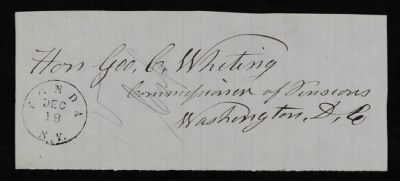 Hon Geo. C. Whiting
Commissioner of Pensions
Washington, D, Co
FONDA
DEC
18
N.Y.